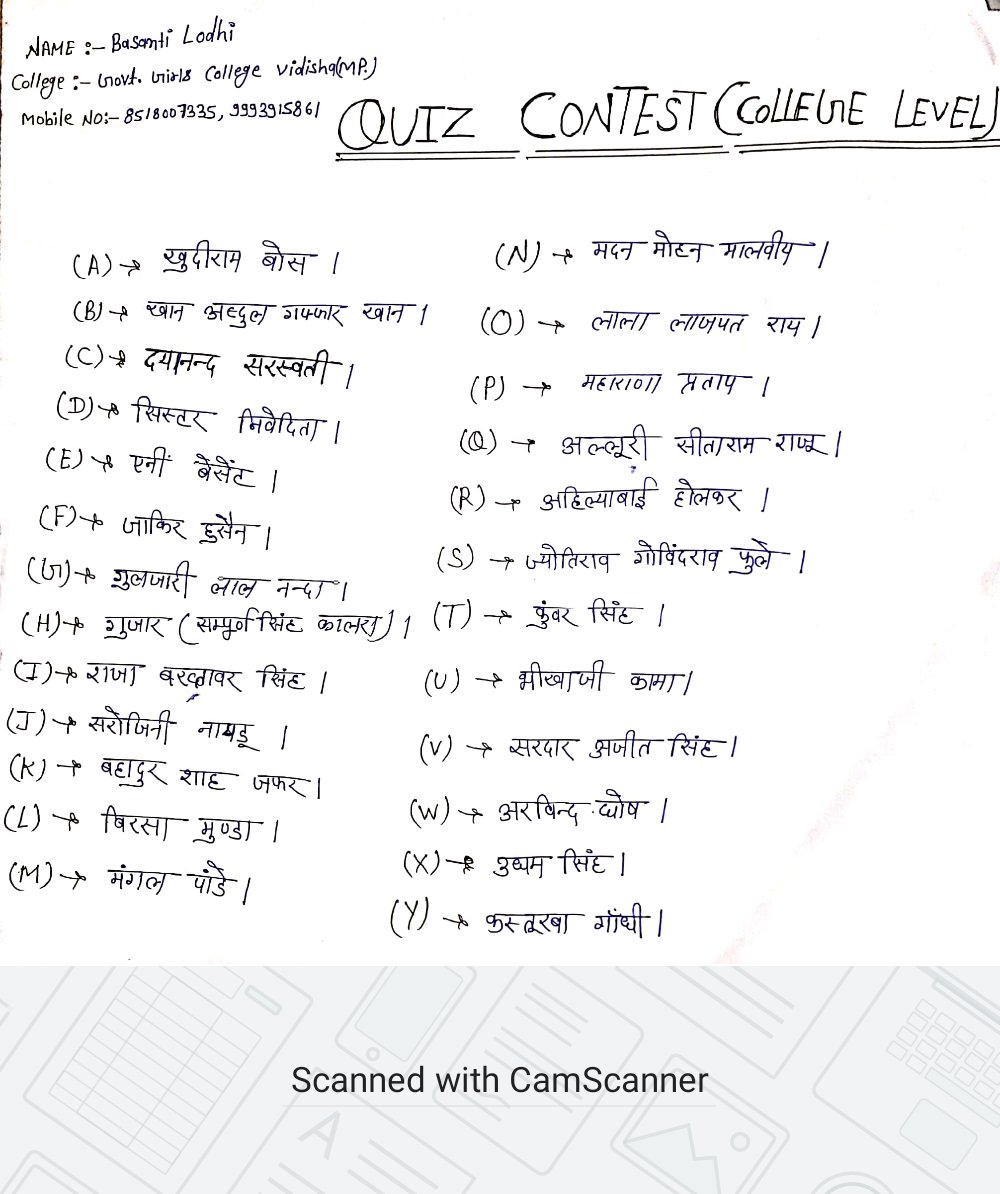 NAME :- Basanti Lodhi
College :- Govt. Girls College Vidisha(MP.)
Mobile NO:- 8518007335, 9993915861
QUIZ CONTEST (COLLEGE LEVEL)
(A) → खुदीराम बोस ।
(B) → खान अब्दुल गफ्फार खान ।
(C) → दयानन्द सरस्वती ।
(D) → सिस्टर निवेदिता ।
(E) → एनी बेसेंट ।
(F) → जाकिर हुसैन ।
(G) → गुलजारी लाल नन्दा ।
(H) → गुजार (सम्पूर्ण सिंह कालरा) ।
(I) → राजा बख्तावर सिंह ।
(J) → सरोजिनी नायडू ।
(K) → बहादुर शाह जफर ।
(L) → बिरसा मुण्डा ।
(M) → मंगल पांडे ।
(N) → मदन मोहन मालवीय ।
(O) → लाला लाजपत राय ।
(P) → महाराणा प्रताप ।
(Q) → अल्लूरी सीताराम राजू ।
(R) → अहिल्याबाई होलकर ।
(S) → ज्योतिराव गोविंदराव फुले ।
(T) → कुंवर सिंह ।
(U) → भीखाजी कामा ।
(V) → सरदार अजीत सिंह ।
(W) → अरविन्द घोष ।
(X) → उधम सिंह ।
(Y) → कस्तूरबा गाँधी ।
Scanned with CamScanner